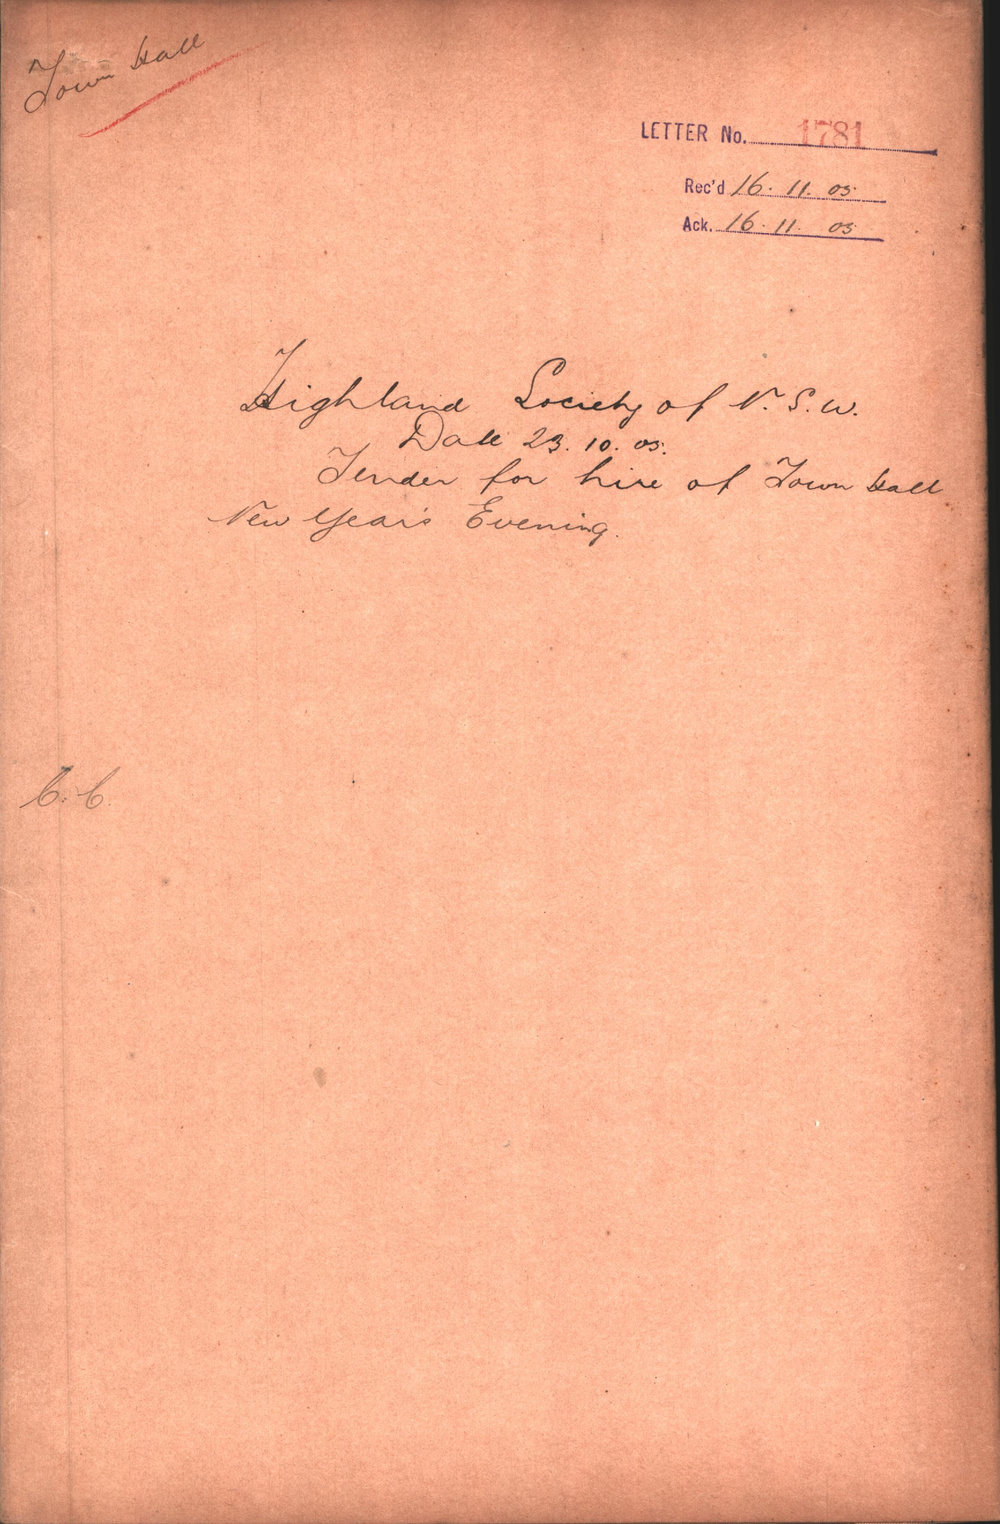 Town Hall
LETTER No. 1781
Rec'd 16. 11. 05.
Ack. 16. 11. 05
Highland Society of N. S. W.
Date 23. 10. 05.
Tender for hire of Town Hall
New Year's Evening.
C. C.